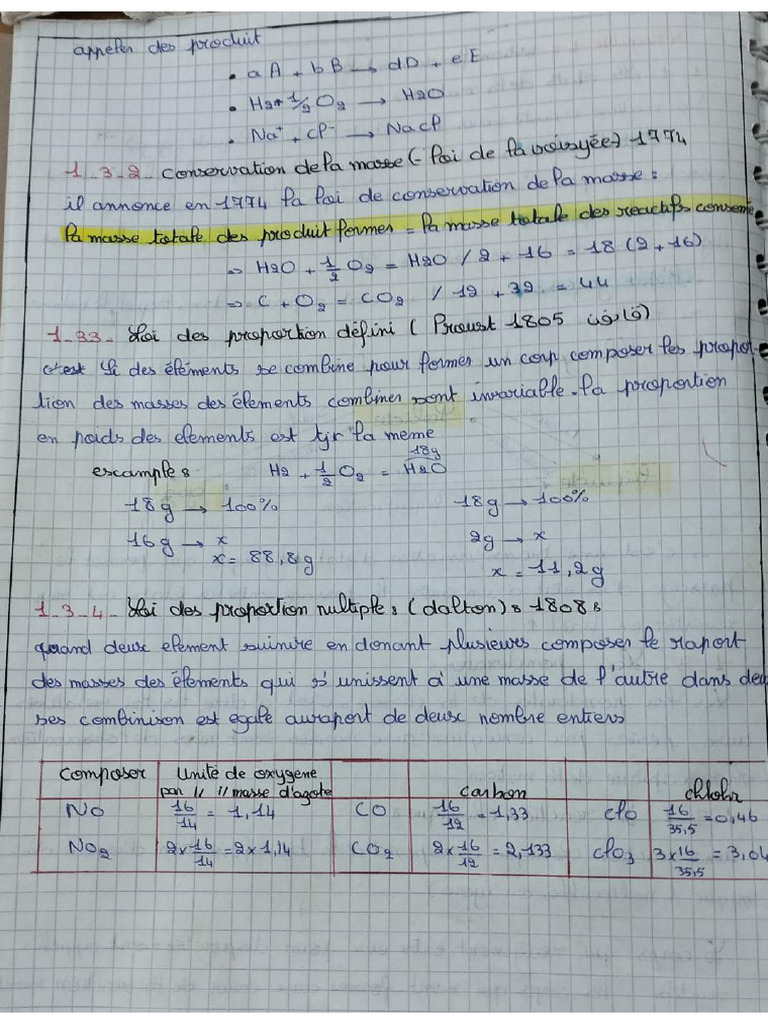 appeler des produit
• aA + bB → dD + eE
• H2 + 1/2 O2 → H2O
• Na+ + Cl- → NaCl
1_3_2_ conservation de la masse (- loi de lavoisyée) 1774
il annonce en 1774 la loi de conservation de la masse :
la masse totale des produit formes = la masse totale des reactifs consome
⇒ H2O + 1/2 O2 = H2O / 2 + 16 = 18 (2 + 16)
⇒ C + O2 = CO2 / 12 + 32 = 44
1_33_ Loi des proportion défini ( Proust 1805 قانون)
Si des éléments se combine pour former un corp composer les propor-
tion des masses des élements combiner sont invariable. la proportion
en poids des elements est tjr la meme
escample :
18g
H2 + 1/2 O2 = H2O
18g → 100% 18g → 100%
16g → x 2g → x
x = 88,8g x = 11,2g
1_3_4_ Loi des proportion multiple : (dalton) : 1808 :
quand deux element suinire en donant plusieures composer le raport
des masses des élements qui s'unissent à une masse de l'autre dans deu
ses combinison est egale au raport de deux nombre entiers
composer Unité de oxygene carbon chlohr
par // // masse d'azote
NO 16/14 = 1,14 CO 16/12 = 1,33 clo 16/35,5 = 0,46
NO2 2×16/14 = 2×1,14 CO2 2×16/12 = 2,133 clo3 3×16/35,5 = 3,04